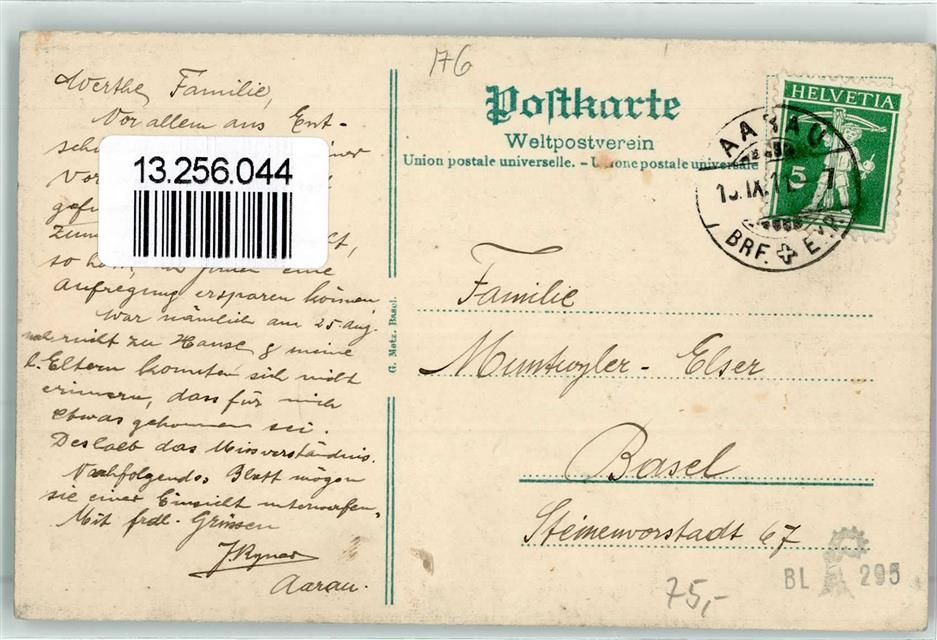 176
Postkarte
Weltpostverein
Union postale universelle. - Unione postale universale
HELVETIA
5
AARAU
BRF. E
Werthe Familie,
Vor allem aus Ent-
13.256.044
so
eine
Aufregung ersparen können
War nämlich am 25. Aug.
nicht zu Hause & meine
l. Eltern konnten sich nicht
erinnern, dass für mich
etwas gekommen sei.
Deshalb das Missverständnis.
Nachfolgendes Blatt mögen
sie einer Einsicht unterwerfen,
Mit frdl. Grüssen
J. Ryner
Aarau.
G. Metz, Basel.
Familie
Muntwyler - Elser
Basel
Steinenvorstadt 67
BL 295
75,-